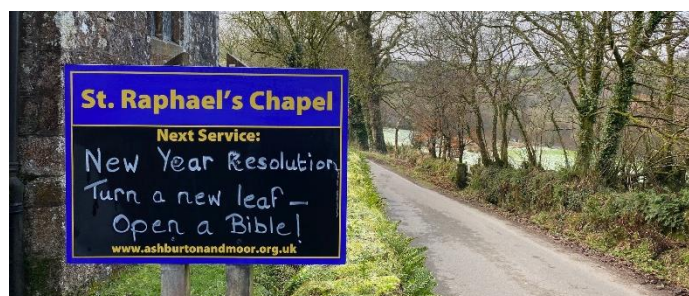 St. Raphael's Chapel
Next Service:
New Year Resolution
Turn a new leaf –
Open a Bible!
www.ashburtonandmoor.org.uk